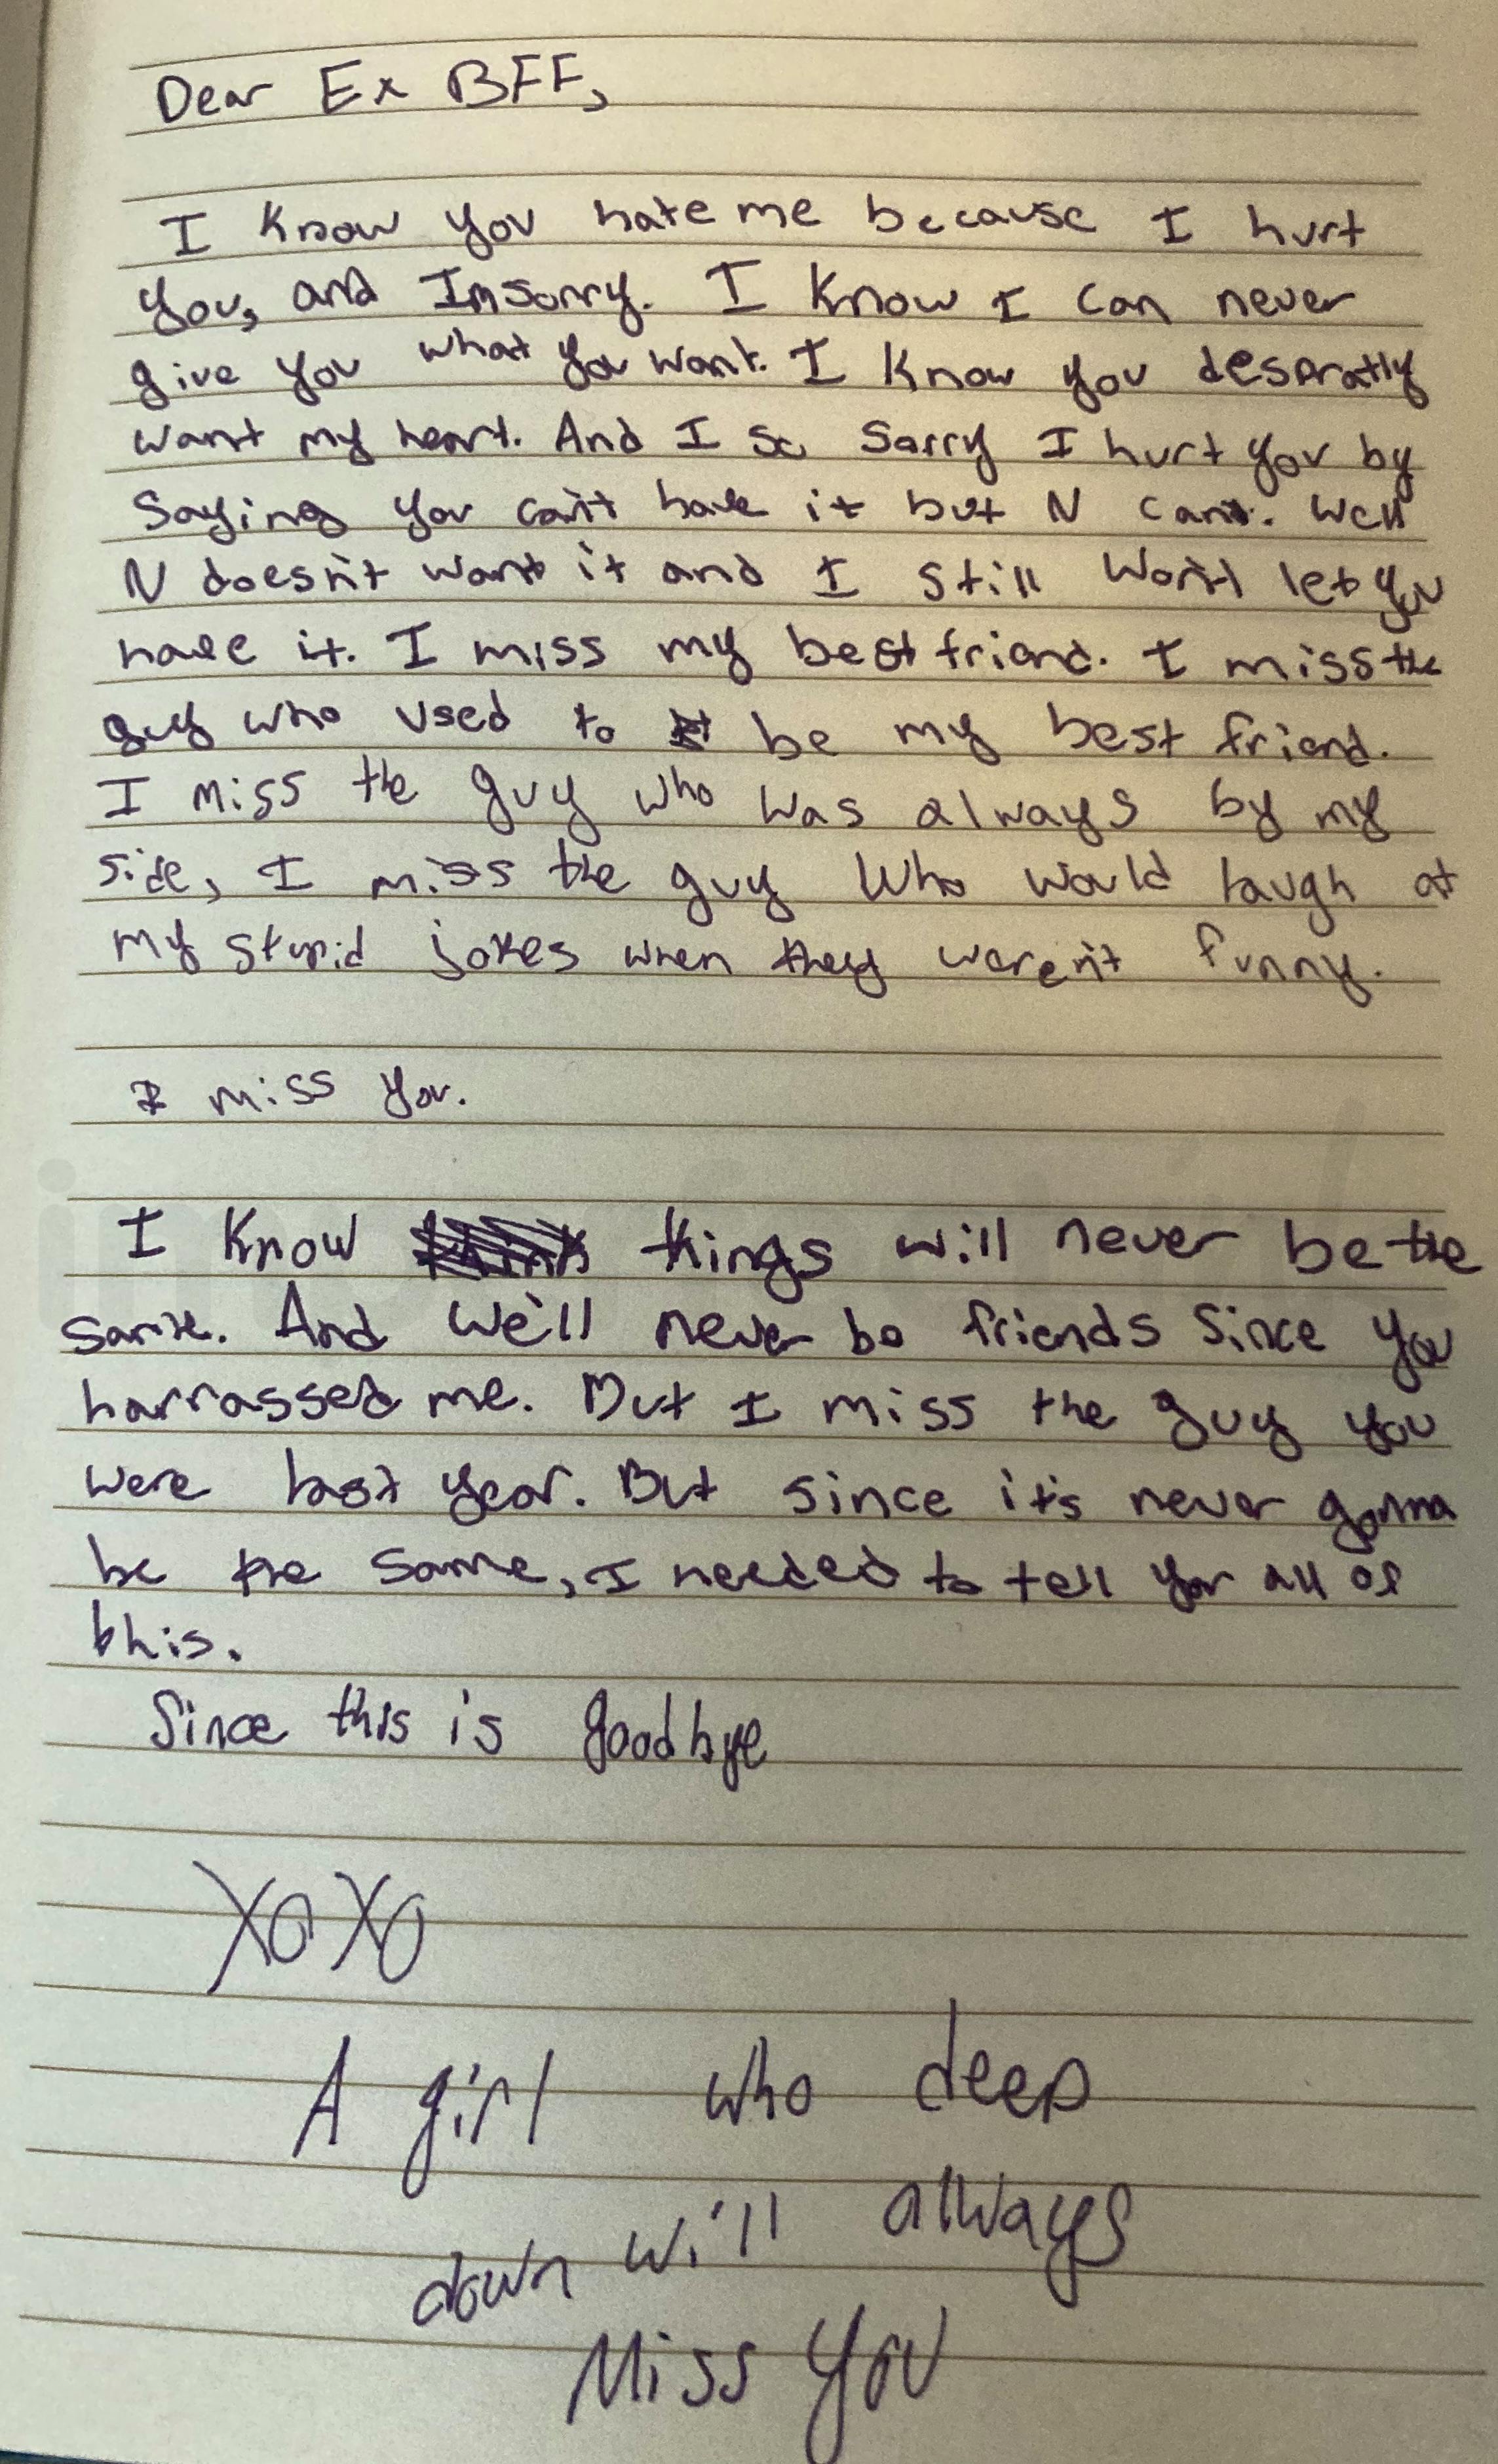 Dear Ex BFF,
I know you hate me because I hurt
you, and Imsorry. I know I can never
give you what you want. I know you despratly
want my heart. And I so sorry I hurt you by
saying you can't have it but N can. Well
N doesn't want it and I still won't let you
have it. I miss my best friend. I miss the
guy who used to be my best friend.
I miss the guy who was always by my
side, I miss the guy who would laugh at
my stupid jokes when they weren't funny.
I miss you.
I know things will never be the
same. And we'll never be friends since you
harrassed me. But I miss the guy you
were last year. But since it's never gonna
be the same, I needed to tell you all of
this.
Since this is goodbye
XOXO
A girl who deep
down will always
Miss you